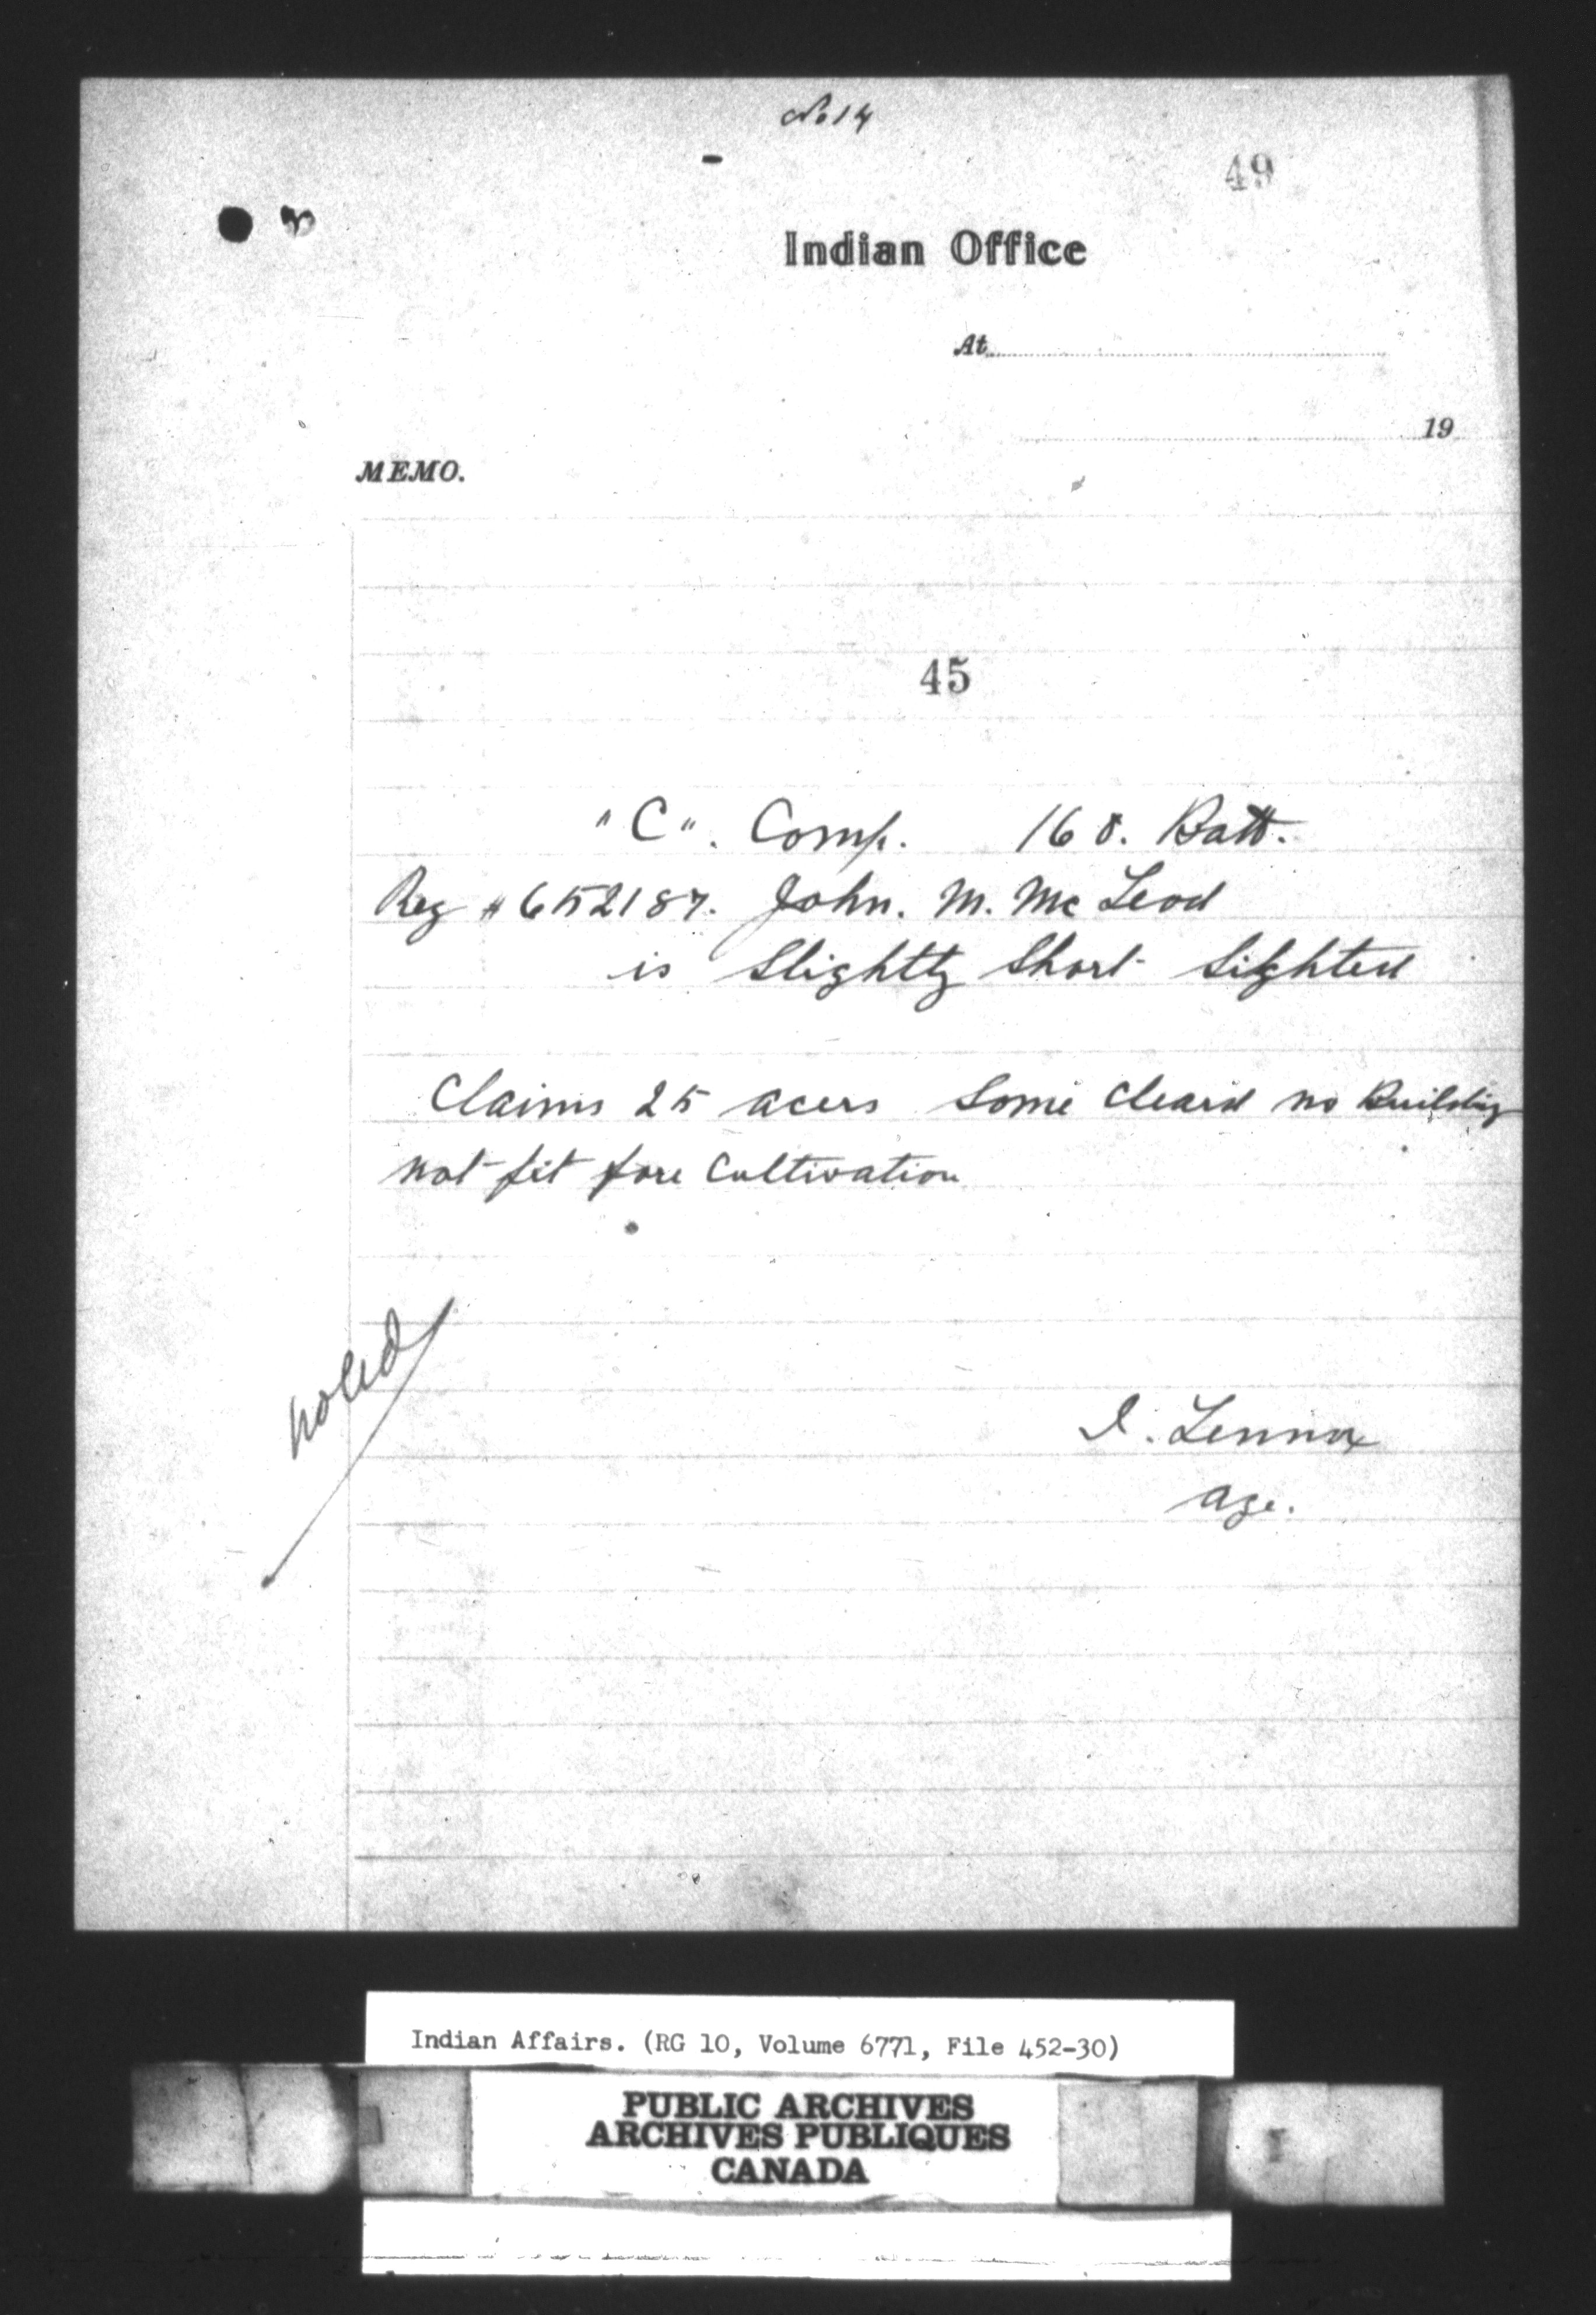 No 14
49
Indian Office
At
19
MEMO.
45
"C". Comp. 160. Batt.
Reg # 652187. John. M. Mc Leod
is Slightly Short Sighted
Claims 25 acers Some Cleard no Building
not fit fore Cultivation
noted
I. Lennox
Age.
Indian Affairs. (RG 10, Volume 6771, File 452-30)
PUBLIC ARCHIVES
ARCHIVES PUBLIQUES
CANADA